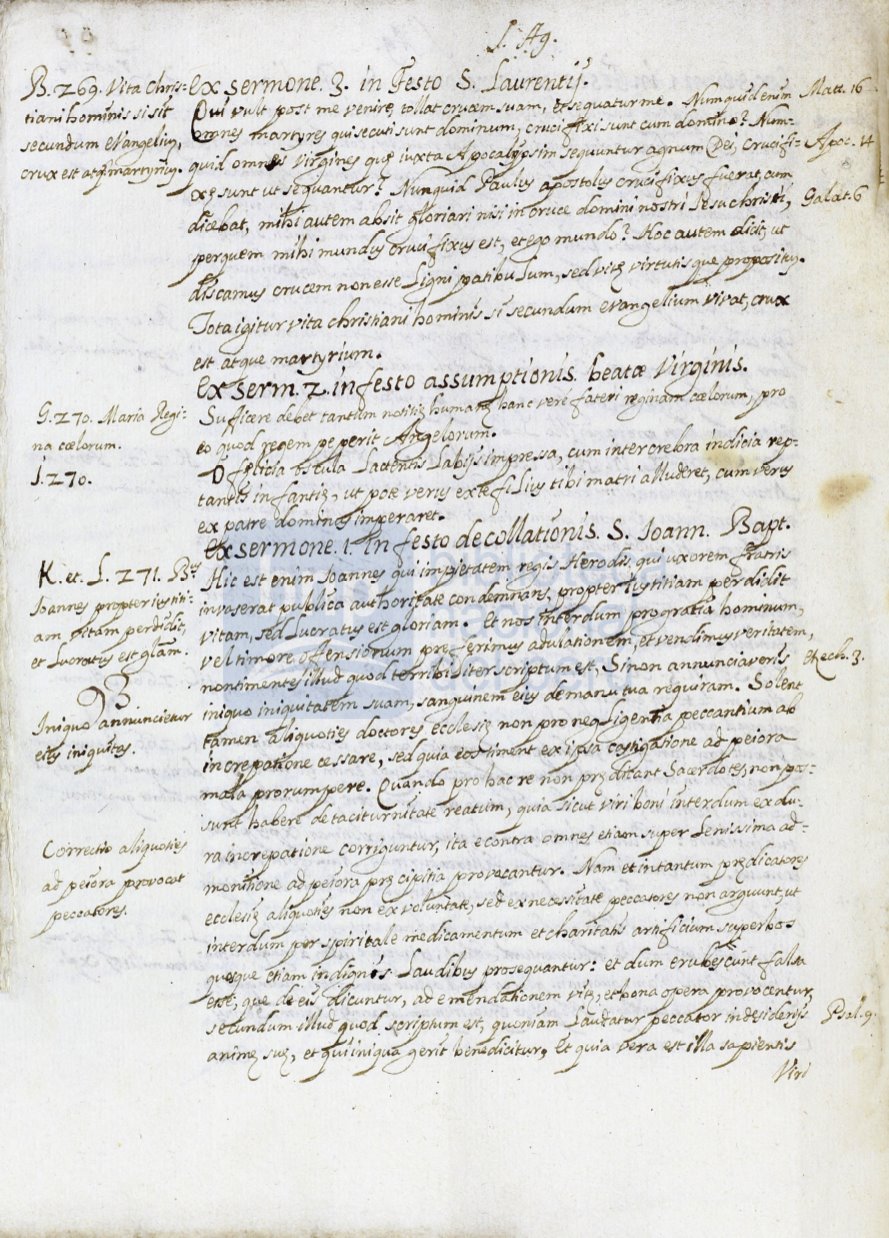 S. Ag.
B. 269. Vita chris-
tiani hominis si sit
secundum evangeliũ,
crux est atq̃ martyriũ.
Ex sermone. 3. in Festo S. Laurentij.
Qui vult post me venire, tollat crucem suam, et sequatur me. Numquid enim
Matt. 16
omnes martyres qui secuti sunt dominum, crucifixi sunt cum domino? Num-
quid omnes virgines quę iuxta Apocalypsim sequuntur agnum Dei, crucifi-
Apoc. 14
xę sunt ut sequantur? Nunquid Paulus apostolus crucifixus fuerat, cum
dicebat, mihi autem absit gloriari nisi in cruce domini nostri Jesu christi,
Galat. 6
per quem mihi mundus crucifixus est, et ego mundo? Hoc autem dicit, ut
discamus crucem non esse Ligni patibulum, sed vitę virtutisque propositũ.
Tota igitur vita christiani hominis si secundum evangelium vivat, crux
est atque martyrium.
Ex serm. 2. in festo assumptionis. beatæ virginis.
G. 270. Maria Regi-
na cœlorum.
Sufficere debet tantum notitię humanę hanc vere fateri reginam cœlorum, pro
eo quod regem peperit Angelorum.
J. 270.
O felicia oscula Lactentis Labijs impressa, cum inter crebra indicia rep-
tantis infantię, ut pote verus ex te filius tibi matri alluderet, cum verus
ex patre dominus imperaret.
Ex sermone. 1. in festo decollationis. S. Joann. Bapt.
K. et. L. 271. Bᵗᵘˢ
Joannes propter iustiti-
am vitam perdidit,
et Lucratus est glam̃.
Hic est enim Joannes qui impietatem regis Herodis, qui uxorem fratris
invaserat publica authoritate condemnans, propter iustitiam perdidit
vitam, sed Lucratus est gloriam. Et nos interdum pro gratia hominum,
vel timore offensionum preferimus adulationem, et vendimus veritatem,
non timentes illud quod terribiliter scriptum est, Si non annunciaveris
Ezech. 3.
iniquo iniquitatem suam, sanguinem eius de manu tua requiram. Solent
Iniquo annuncietur
eius iniquitas.
tamen aliquoties doctores ecclesię non pro negligentia peccantium ab
increpatione cessare, sed quia eos timent ex ipsa castigatione ad peiora
mala prorumpere. Quando pro hac re non prędicant Sacerdotes, non pos-
sunt habere de taciturnitate reatum, quia sicut viri boni interdum ex du-
Correctio aliquoties
ad peiora provocat
peccatores.
ra increpatione corriguntur, ita e contra omnes etiam super Lenissima ad-
monitione ad peiora pręcipitia provocantur. Nam et in tantum prędicatores
ecclesię aliquoties non ex voluntate, sed ex necessitate peccatores non arguunt, ut
interdum per spiritale medicamentum et charitatis artificium superbos
quosque etiam indignis Laudibus prosequantur: et dum erubescunt falsa
esse, que de eis dicuntur, ad emendationem vitę, et bona opera provocentur,
secundum illud quod scriptum est, quoniam Laudatur peccator in desiderijs
Psal. 9.
animę suę, et qui iniqua gerit benedicitur, Et quia vera est illa sapientis
Viri